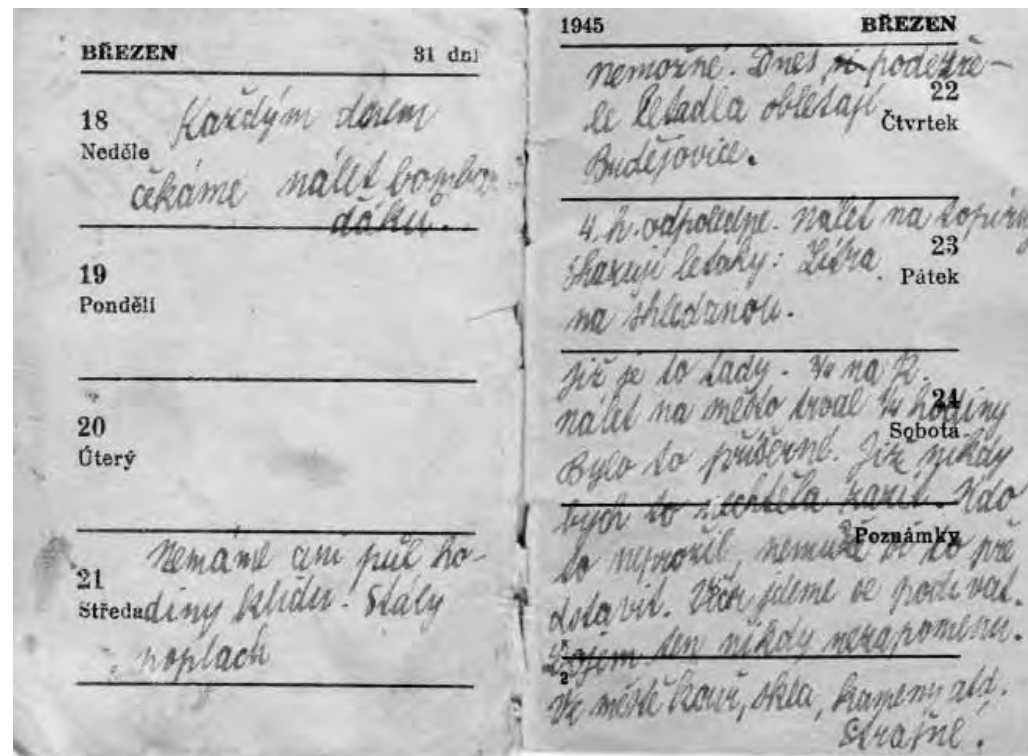 BŘEZEN 31 dní
18
Neděle
Každým dnem
čekáme nálet bombar
dáků.
19
Pondělí
20
Úterý
21
Středa
Nemáme ani půl ho-
diny klidu. Stálý
poplach
1945 BŘEZEN
nemožné. Dnes podezře-
lé letadla oblétají
22
Čtvrtek
Budějovice.
4. h. odpoledne. Nálet na topírny
23
Pátek
shazují letáky: Zítra
na shledanou.
již je to tady. ¾ na 12.
24
Sobota
nálet na město trval ¼ hodiny
Bylo to příšerné. Již nikdy
bych to nechtěla zažít. Kdo
Poznámky
to neprožil, nemůže si to pře
dstavit. Večer jdeme se podívat.
Dojem ten nikdy nezapomenu.
2
Ve městě kouř, skla, kameny atd.
strašné.